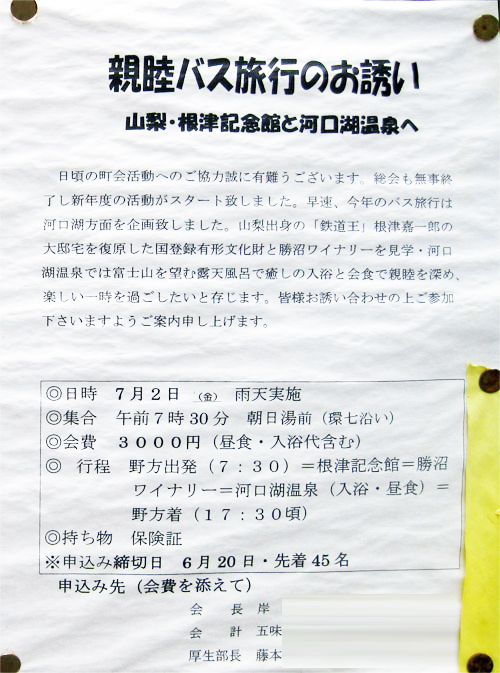 親睦バス旅行のお誘い
山梨・根津記念館と河口湖温泉へ
日頃の町会活動へのご協力誠に有難うございます。総会も無事終
了し新年度の活動がスタート致しました。早速、今年のバス旅行は
河口湖方面を企画致しました。山梨出身の「鉄道王」根津嘉一郎の
大邸宅を復原した国登録有形文化財と勝沼ワイナリーを見学・河口
湖温泉では富士山を望む露天風呂で癒しの入浴と会食で親睦を深め、
楽しい一時を過ごしたいと存じます。皆様お誘い合わせの上ご参加
下さいますようご案内申し上げます。
◎日時 7月2日 (金) 雨天実施
◎集合 午前7時30分 朝日湯前（環七沿い）
◎会費 3000円（昼食・入浴代含む）
◎ 行程 野方出発（7：30）＝根津記念館＝勝沼
ワイナリー＝河口湖温泉（入浴・昼食）＝
野方着（17：30頃）
◎持ち物 保険証
※申込み締切日 6月20日・先着45名
申込み先（会費を添えて）
会 長 岸
会 計 五味
厚生部長 藤本